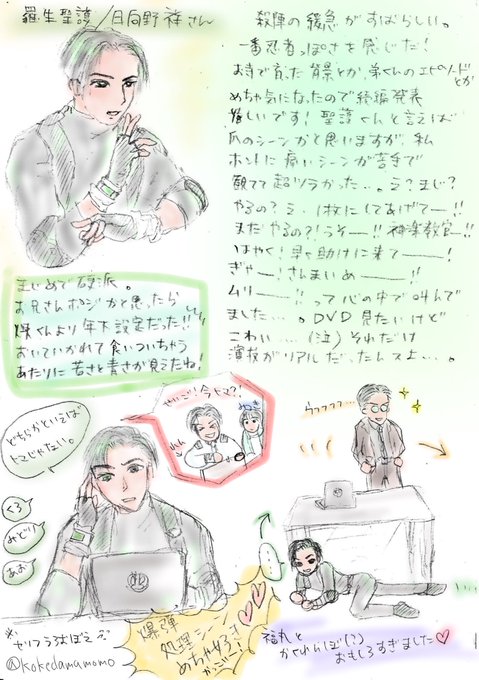 羅生聖護/日向野祥さん
殺陣の緩急がすばらしい。
一番忍者っぽさを感じた！
お寺で育った背景とか、弟くんのエピソードとか
めちゃ気になったので続編発表
嬉しいです！聖護くんと言えば
爪のシーンかと思いますが、私
ホントに痛いシーンが苦手で
観てて超ツラかった…。え？まじ？
やるの？え、1枚にしてあげてー！！
まだやるの？！うそー！！神楽教官ー！！
はやく！早く助けに来てーー！
ぎゃー！さんまいめーー！！
ムリーー！！って心の中で叫んで
ました…。DVD見たいけど
こわい…（泣）それだけ
演技がリアルだったんでよ…。
まじめで硬派。
お兄さんポジかと思ったら
くんより年下設定だった！！
おいていかれて食いついちゃう
あたりに若さと青さが見えたね！
どちらかといえば
ヒマじゃない。
くろ
みどり
あお
今ヒマ？！
ウフフフフ…
爆弾
処理シーン
めちゃ好き
※セリフうろ覚え
@kokedamamomo
福丸と
かくれんぼ(?)
おもしろすぎました♡